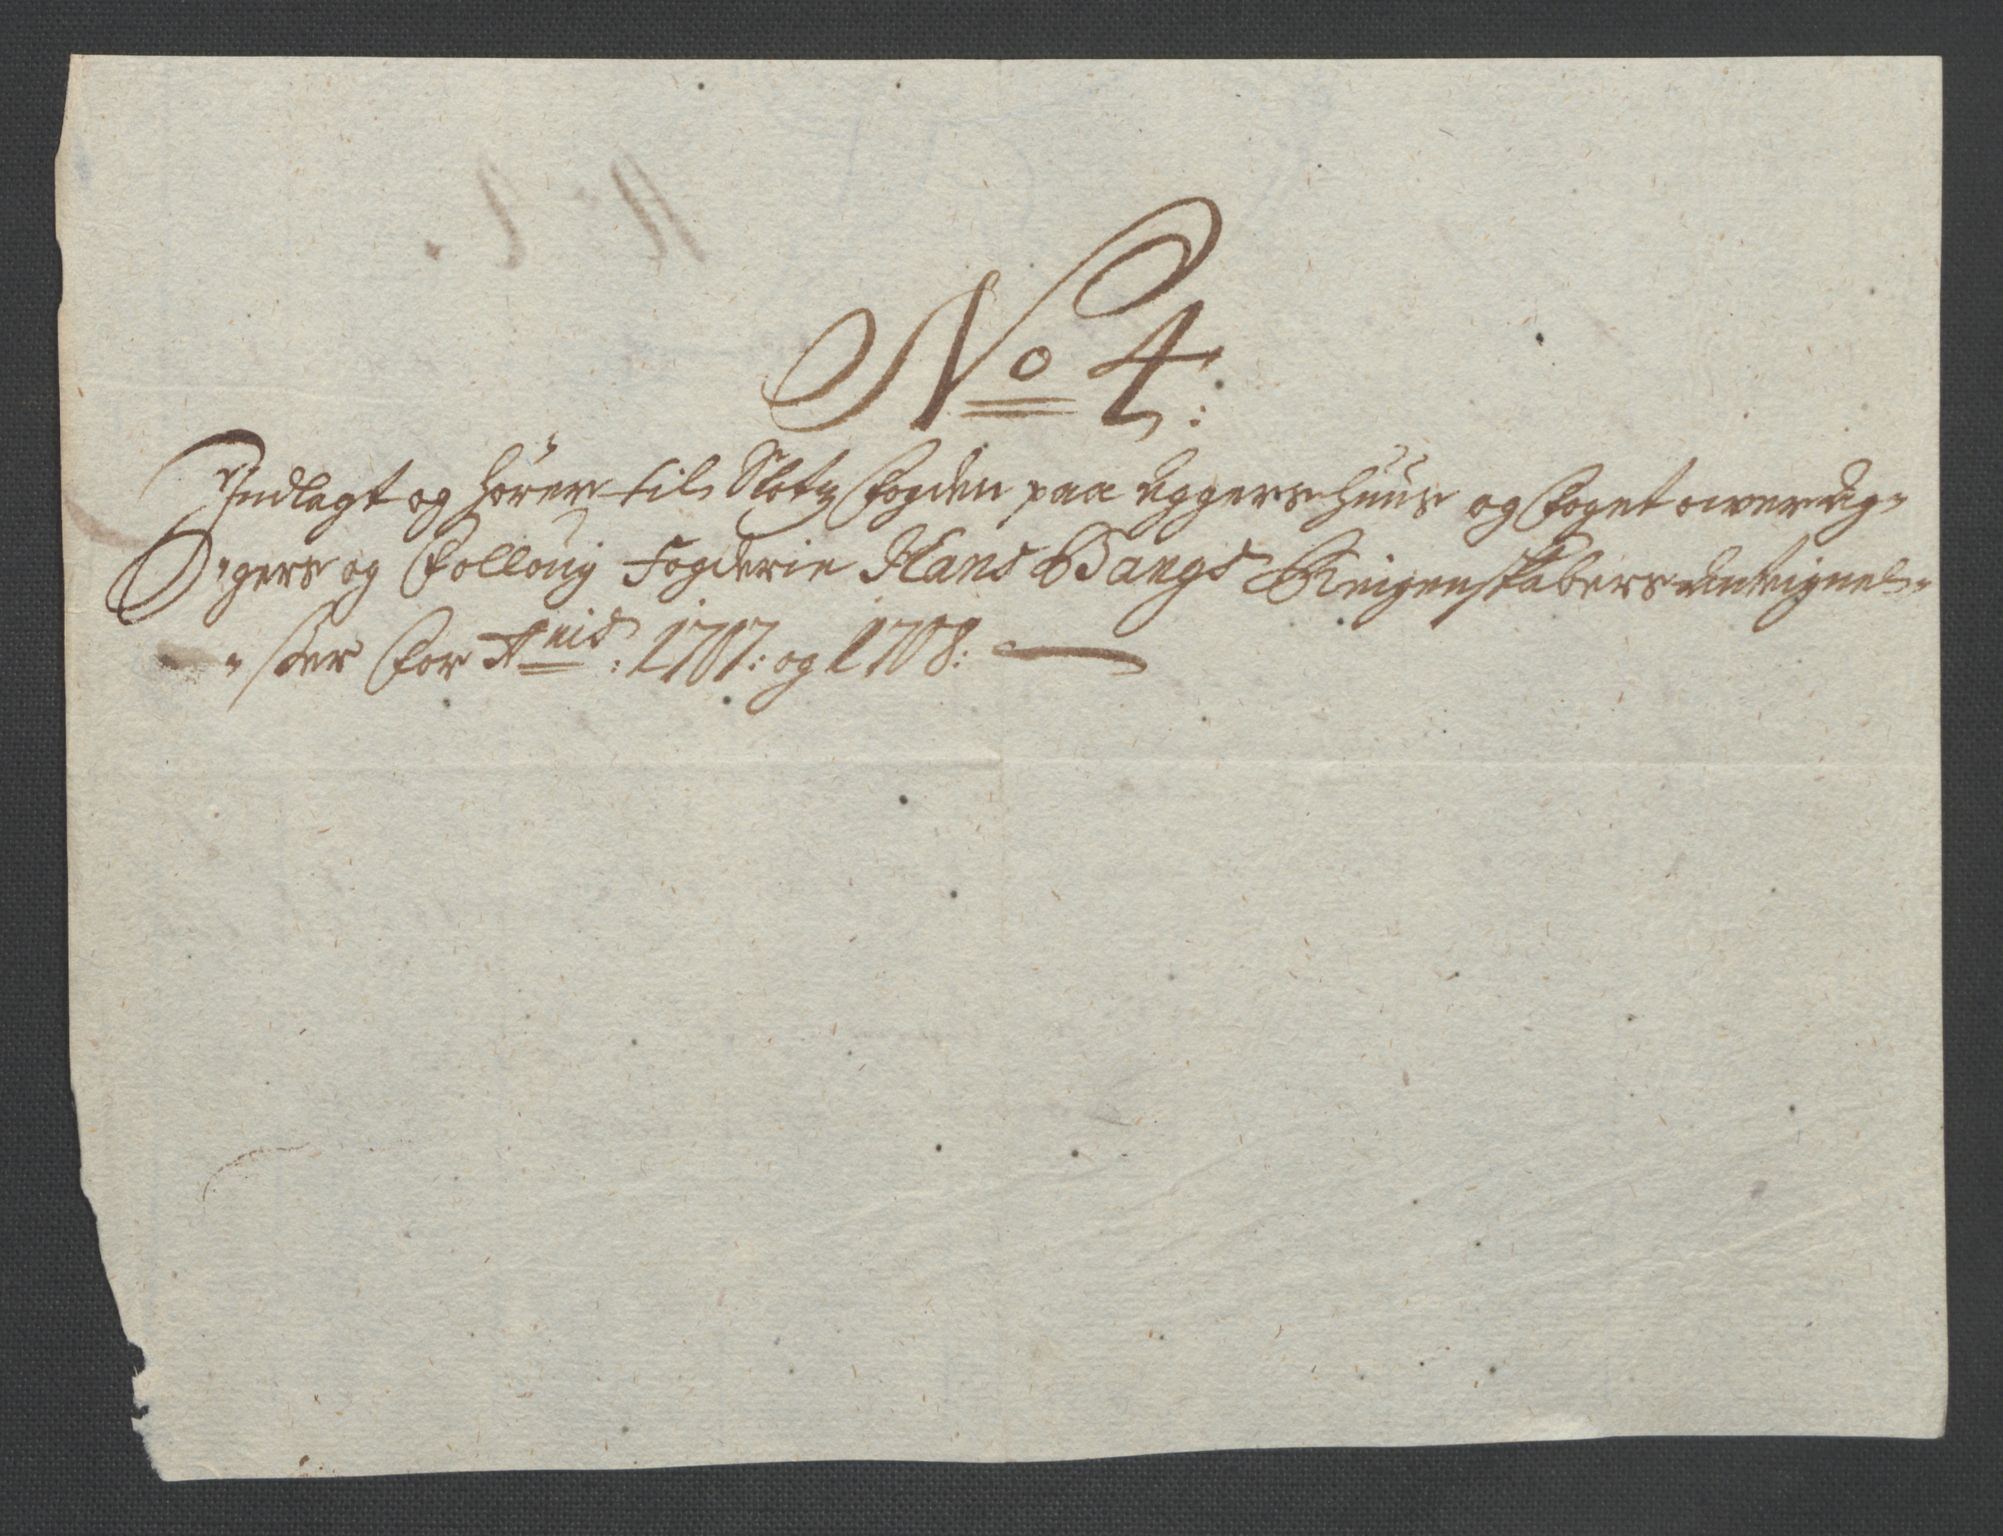 No 4:
Indlagt og hører til Slotz Fogden paa Aggershuus og Foget ower Ag-
gers og Folloug Fogderie Hans Bangs Reigenskabers Anteignel-
ser for Anis: 1707: og 1708: